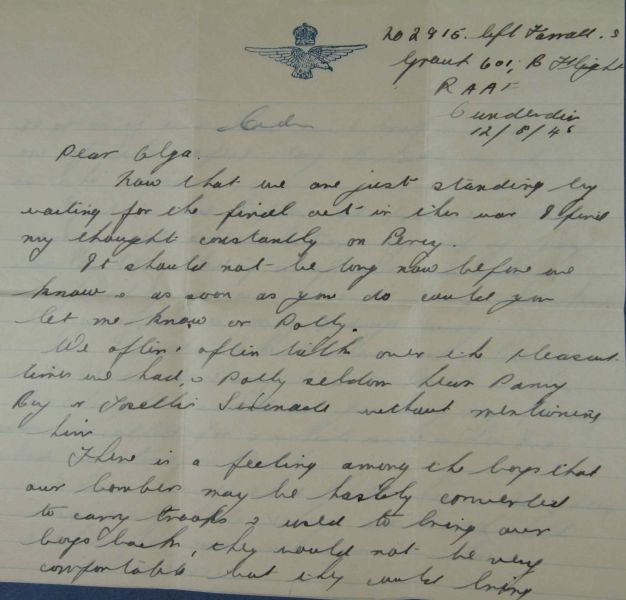 202915. Cpl Farrall. S
601, B Flight
RAAF
Cunderdin
12/8/45
Dear Olga.
Now that we are just standing by
waiting for the final act in this war I find
my thought constantly on Percy.
It should not be long now before we
know & as soon as you do could you
let me know or Polly.
We often, often talk over the pleasant
times we had, & Polly seldom hears Danny
Boy or Toselli's Serenade without mentioning
him
There is a feeling among the boys that
our bombers may be hastely converted
to carry troops & used to bring our
boys back, they would not be very
comfortable but they could bring